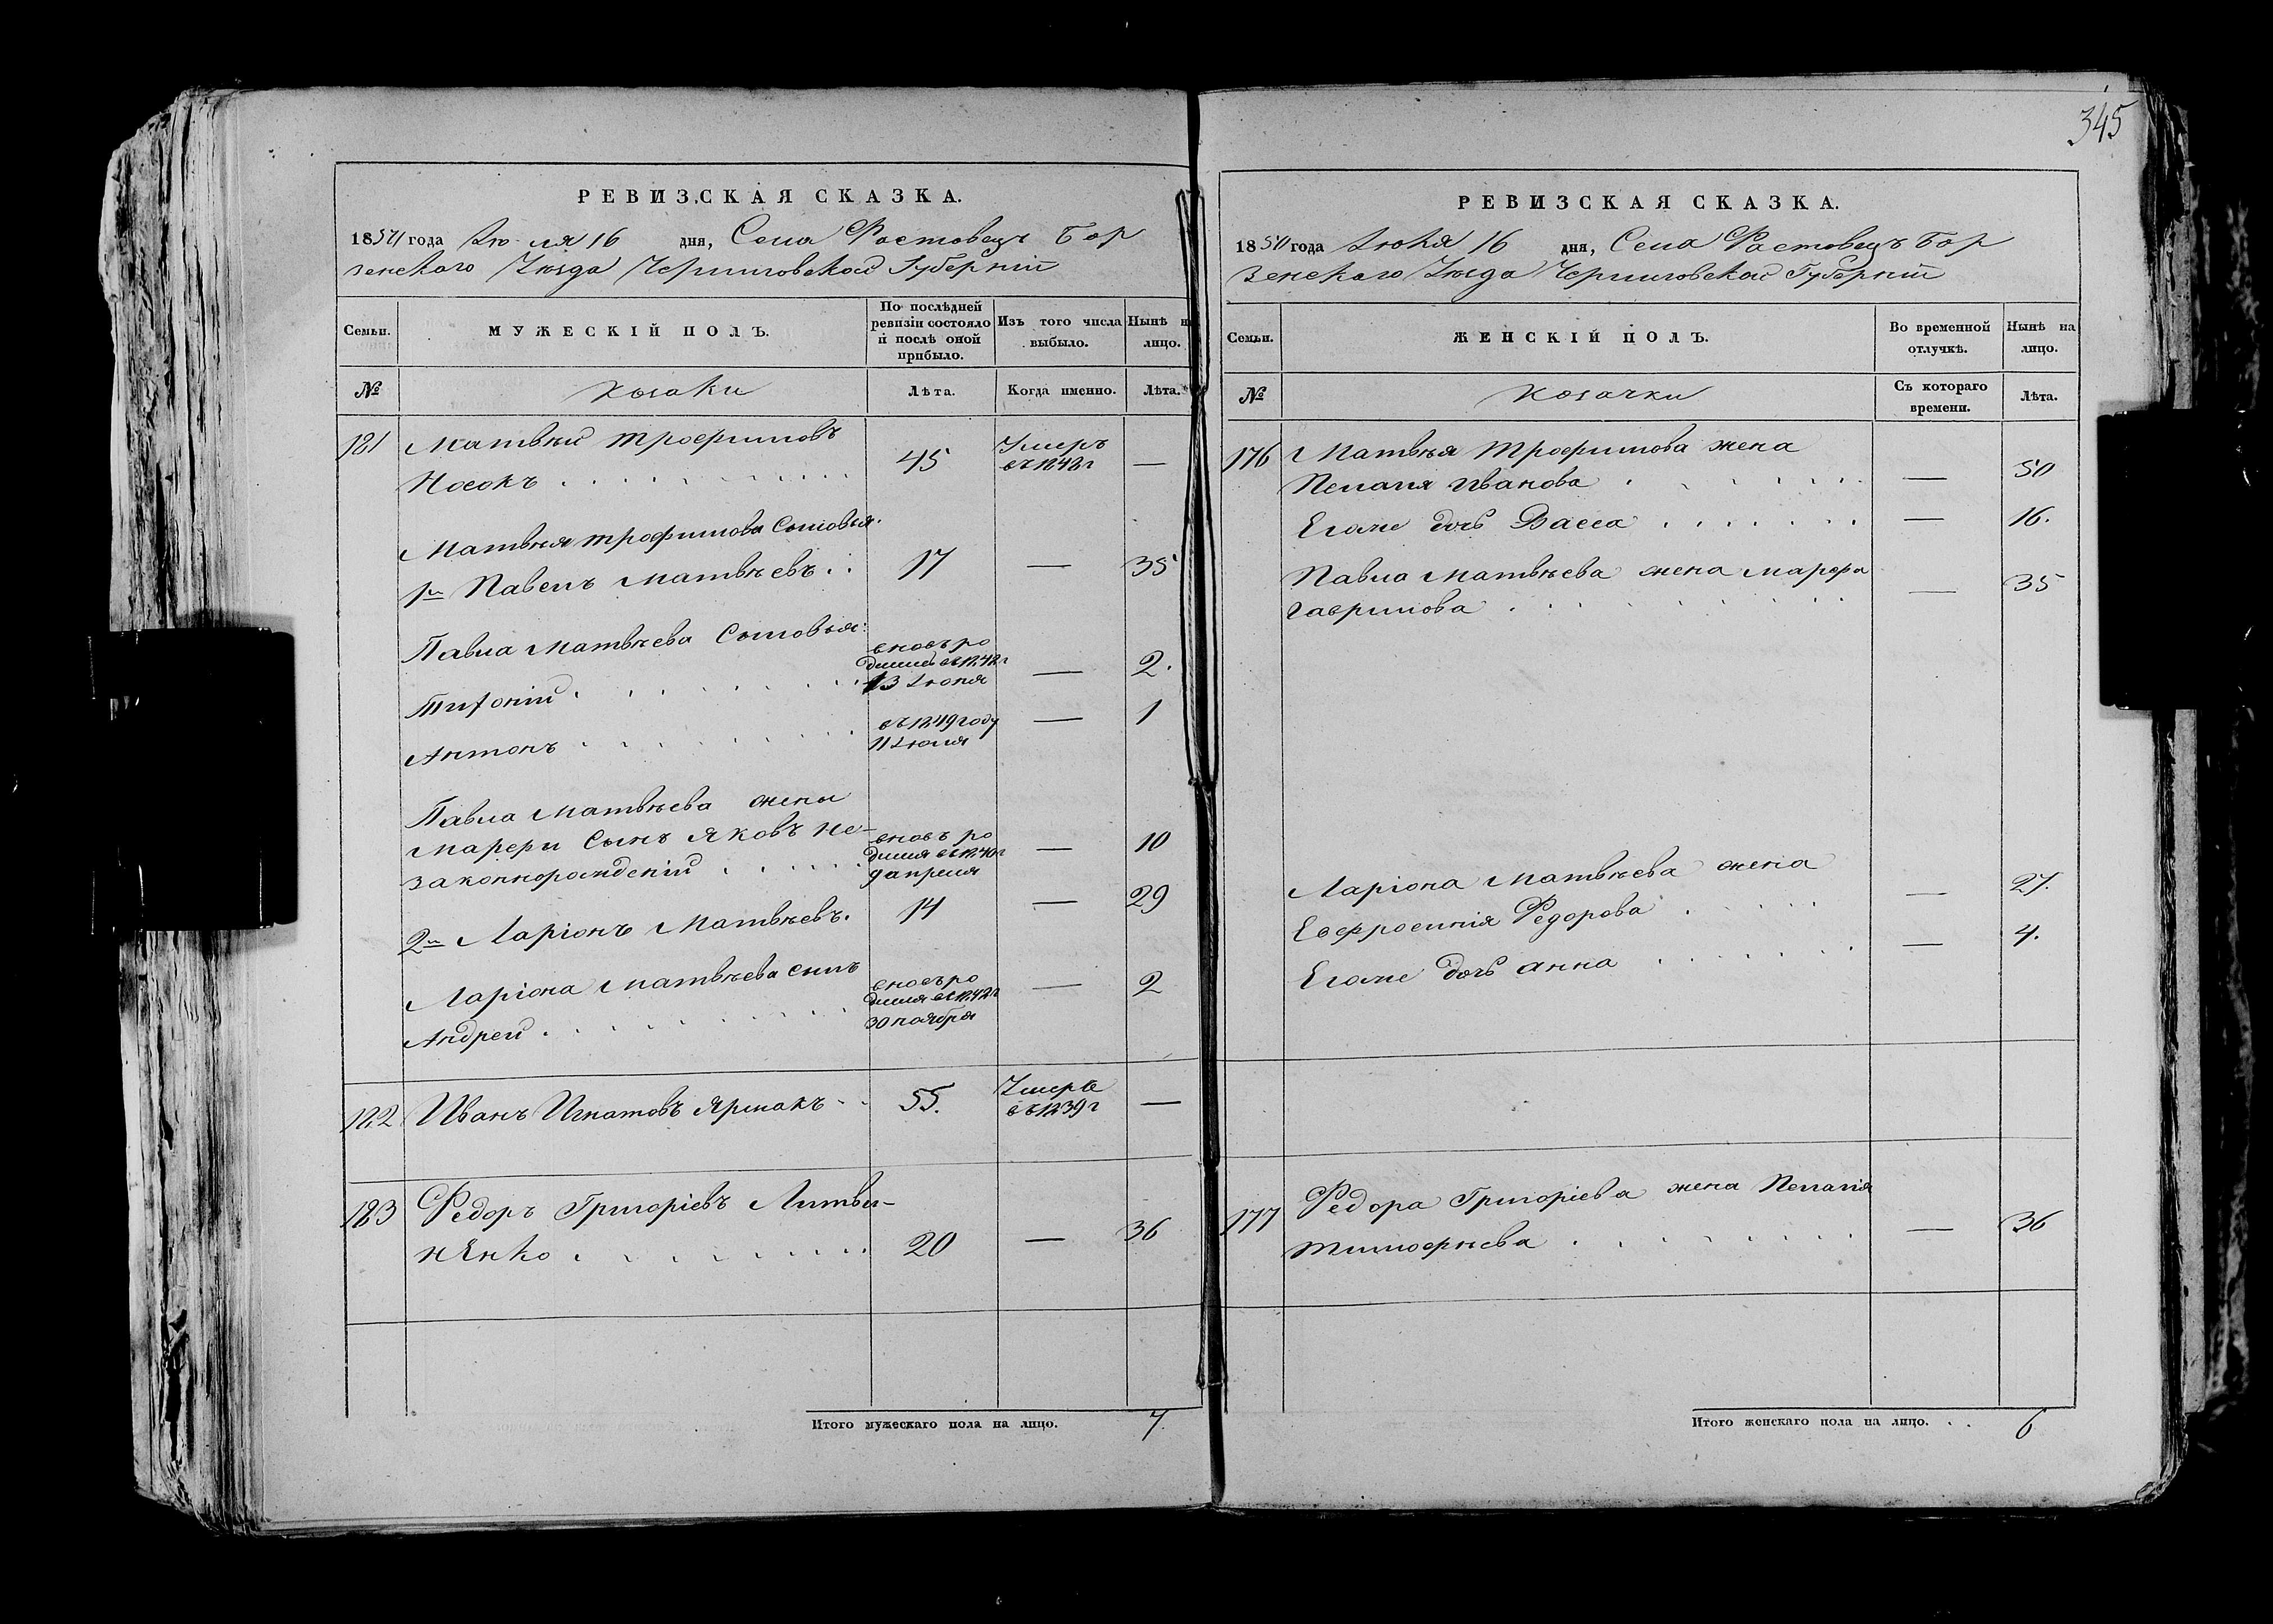 РЕВИЗСКАЯ СКАЗКА.
1850 года Іюля 16 дня, Села Ростовецъ Бор
зенскаго Уѣзда Черниговской Губерніи
Семьи.
МУЖЕСКІЙ ПОЛЪ.
По послѣдней
ревизіи состояло
и послѣ оной
прибыло.
Изъ того числа
выбыло.
Нынѣ на
лицо.
№
Козаки
Лѣта.
Когда именно.
Лѣта.
181 Матвѣй Трофимовъ
Носокъ 45 Умеръ въ 1848 г —
Матвѣя Трофимова Сыновья.
1й Павелъ Матвѣевъ 17 — 35
Павла Матвѣева Сыновья:
Тифоній вновь ро
дился въ 1848 г
13 Іюня — 2.
Антонъ въ 1849 году
11 Іюля — 1
Павла Матвѣева жены
Марфы Сынъ Яковъ не-
законнорожденій вновь ро
дился въ 1840 г
9 апреля — 10
2й Ларіонъ Матвѣевъ. 14 — 29
Ларіона Матвѣева сынъ
Андрей вновь ро
дился въ 1848 г
30 ноября — 2
182 Иванъ Игнатовъ Ярмакъ 55. Умеръ
въ 1839 г —
183 Федоръ Григоріевъ Литви-
нЕнко 20 — 36
Итого мужескаго пола на лицо. 7
345
РЕВИЗСКАЯ СКАЗКА.
1850 года Іюля 16 дня, Села Ростовецъ Бор
зенскаго Уѣзда Черниговской Губерніи
Семьи.
ЖЕНСКІЙ ПОЛЪ.
Во временной
отлучкѣ.
Нынѣ на
лицо.
№
Козачки
Съ котораго
времени.
Лѣта.
176 Матвѣя Трофимова жена
Пелагія Иванова — 50
Егоже дочь Васса — 16.
Павла Матвѣева жена Марфа
Гаврилова — 35
Ларіона Матвѣева жена
Евфросинія Федорова — 27.
Егоже дочь Анна — 4.
177 Федора Григоріева жена Пелагія
Тимофѣева — 36
Итого женскаго пола на лицо. 6